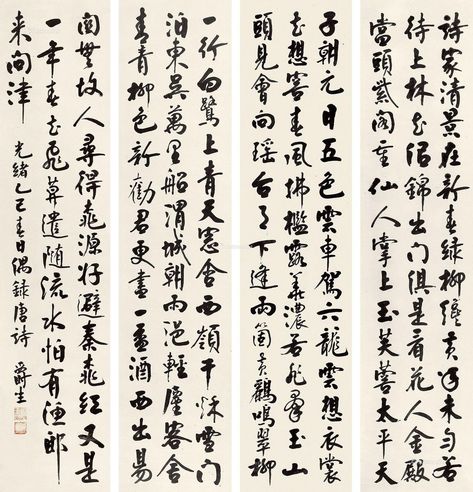 詩家清景在新綠柳纔黃半未勻若
待上林花似錦出門俱是看花人金殿
當頭紫閣重仙人掌上玉芙蓉太平天
子朝元日五色雲車駕六龍雲想衣裳
花想容春風拂檻露華濃若非羣玉山
頭見會向瑤台月下逢兩箇黃鸝鳴翠柳
一行白鷺上青天窓含西嶺千秋雪門
泊東吳萬里船渭城朝雨浥輕塵客舍
青青柳色新勸君更盡一盃酒西出易
關無故人尋得桃源好避秦桃紅又是
一年春花飛莫遣隨流水怕有漁郎
來問津 光緒乙巳春日偶錄唐詩 爵生